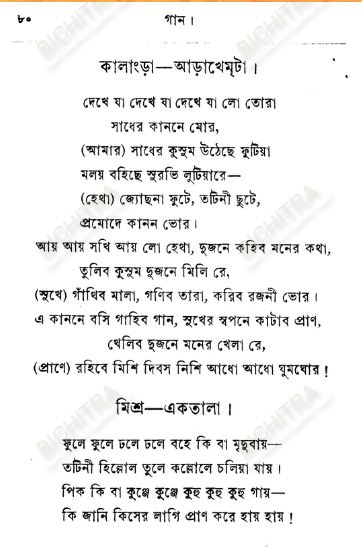 ৮০ গান।
কালাংড়া—আড়াখেম্‌টা।
দেখে যা দেখে যা দেখে যা লো তোরা
সাধের কাননে মোর,
(আমার) সাধের কুসুম উঠেছে ফুটিয়া
মলয় বহিছে সুরভি লুটিয়ারে—
(হেথা) জ্যোছনা ফুটে, তটিনী ছুটে,
প্রমোদে কানন ভোর।
আয় আয় সখি আয় লো হেথা, দুজনে কহিব মনের কথা,
তুলিব কুসুম দুজনে মিলি রে,
(সুখে) গাঁথিব মালা, গণিব তারা, করিব রজনী ভোর।
এ কাননে বসি গাহিব গান, সুখের স্বপনে কাটাব প্রাণ,
খেলিব দুজনে মনের খেলা রে,
(প্রাণে) রহিবে মিশি দিবস নিশি আধো আধো ঘুমঘোর!
মিশ্র—একতালা।
ফুলে ফুলে ঢলে ঢলে বহে কি বা মৃদুবায়—
তটিনী হিল্লোল তুলে কল্লোলে চলিয়া যায়।
পিক কি বা কুঞ্জে কুঞ্জে কুহু কুহু কুহু গায়—
কি জানি কিসের লাগি প্রাণ করে হায় হায়!
BICHITRA
BICHITRA
BICHITRA
BICHITRA
BICHITRA